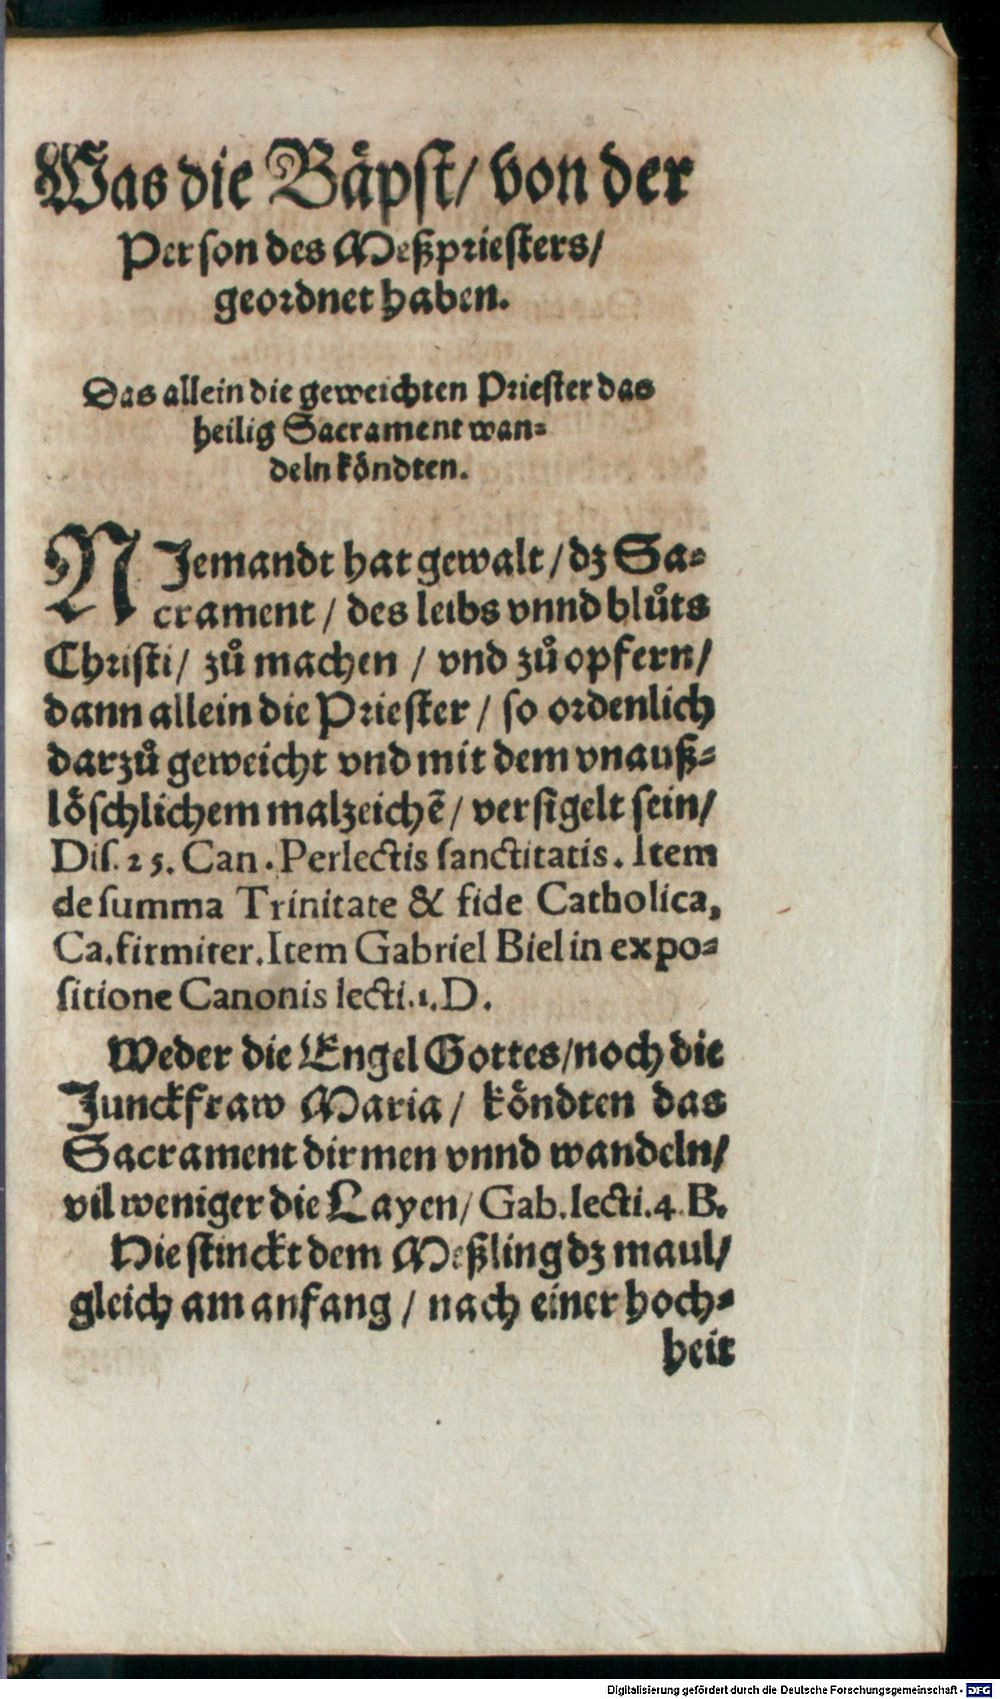 Was die Båpſt/ von der
Perſon des Meßprieſters/
geordnet haben.
Das allein die geweichten Prieſter das
heilig Sacrament wan⸗
deln koͤndten.
NJemandt hat gewalt / dz Sa⸗
crament / des leibs vnnd bluͦts
Chriſti/ zuͦ machen / vnd zuͦ opfern/
dann allein die Prieſter / ſo ordenlich
darzuͦ geweicht vnd mit dem vnauß⸗
loͤſchlichem malzeichē / verſigelt ſein/
Diſ. 25. Can. Perlectis ſanctitatis. Item
de ſumma Trinitate & fide Catholica,
Ca. firmiter. Item Gabriel Biel in expo⸗
ſitione Canonis lecti. 1. D.
Weder die Engel Gottes/ noch die
Junckfraw Maria / koͤndten das
Sacrament dirmen vnnd wandeln/
vil weniger die Layen/ Gab. lecti. 4 B.
Hie ſtinckt dem Meßling dz maul/
gleich am anfang / nach einer hoch⸗
heit
Digitalisierung gefördert durch die Deutsche Forschungsgemeinschaft - DFG